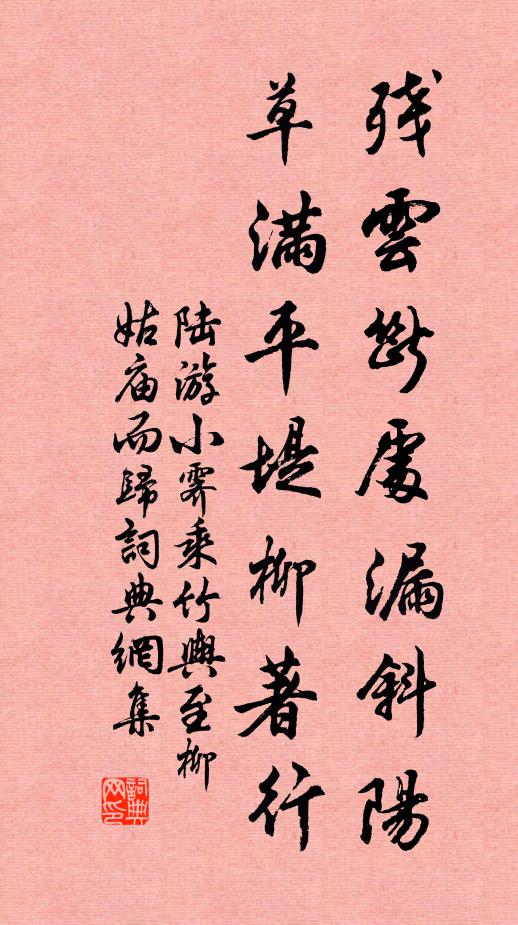 残雲斷處漏斜陽
草满平堤柳著行
陆游小霽乘竹輿至柳
姑庙而歸詞典網集
詞典网印